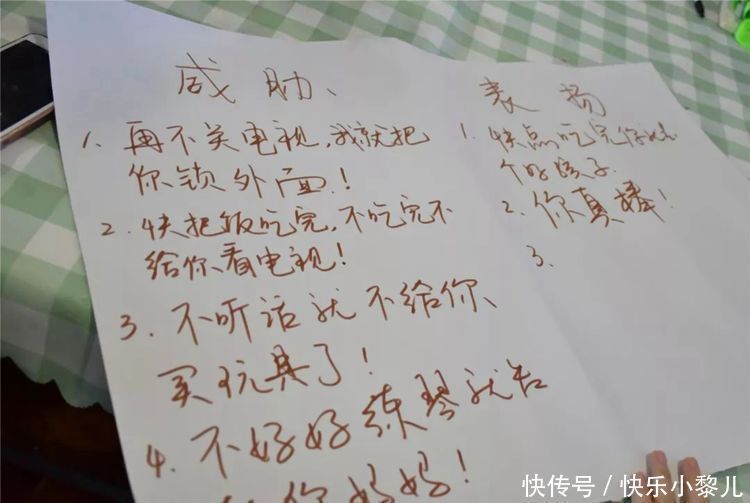 威肋、
1. 再不关电视,我就把
你锁外面!
2. 快把饭吃完,不吃完不
给你看电视!
3. 不听话就不给你、
买玩具了!
4. 不好好练琴就告
你妈妈!
表扬
1. 快点吃完你就是
个好孩子.
2. 你真棒!
3.
快传号/快乐小黎儿